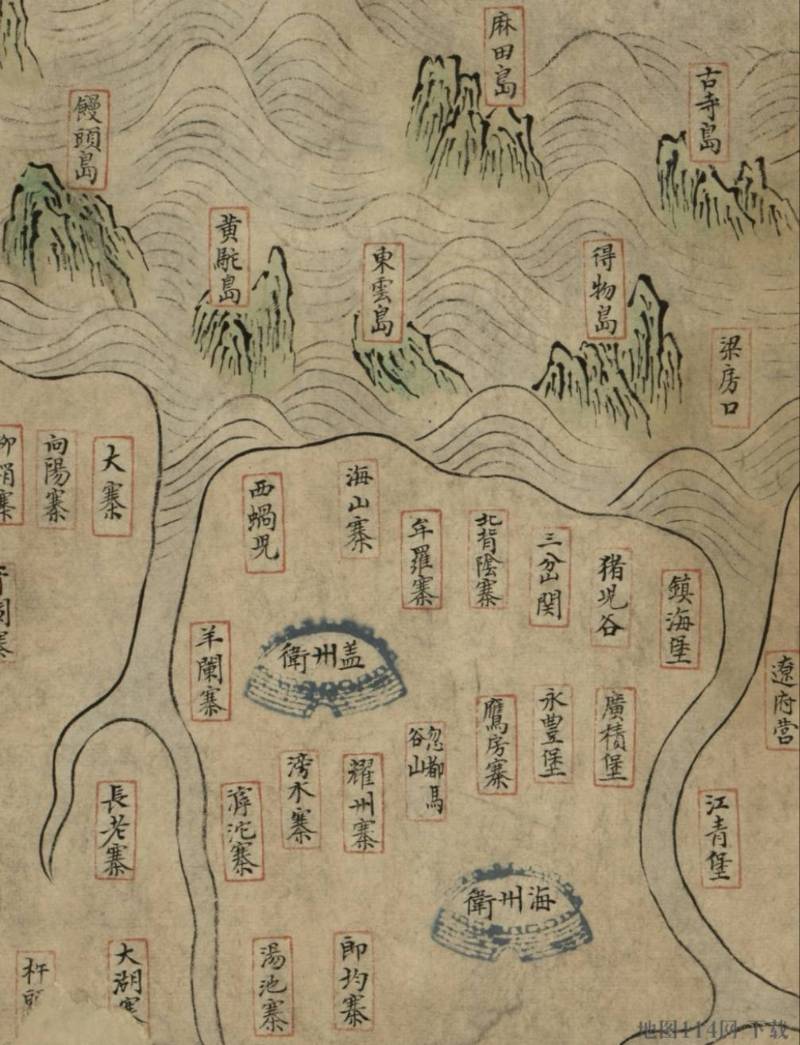 麻田島
古寺島
饅頭島
黄駝島
東雲島
得物島
梁房口
大寨
向陽寨
西蝸児
海山寨
牟羅寨
北背陰寨
三岔関
猪児谷
鎮海堡
遼府营
羊闌寨
盖州衛
鷹房寨
永豊堡
廣積堡
忽都馬
谷山
湾水寨
耀州寨
沱寨
長老寨
江青堡
海州衛
大湖寨
湯池寨
即均寨
地图114网下载